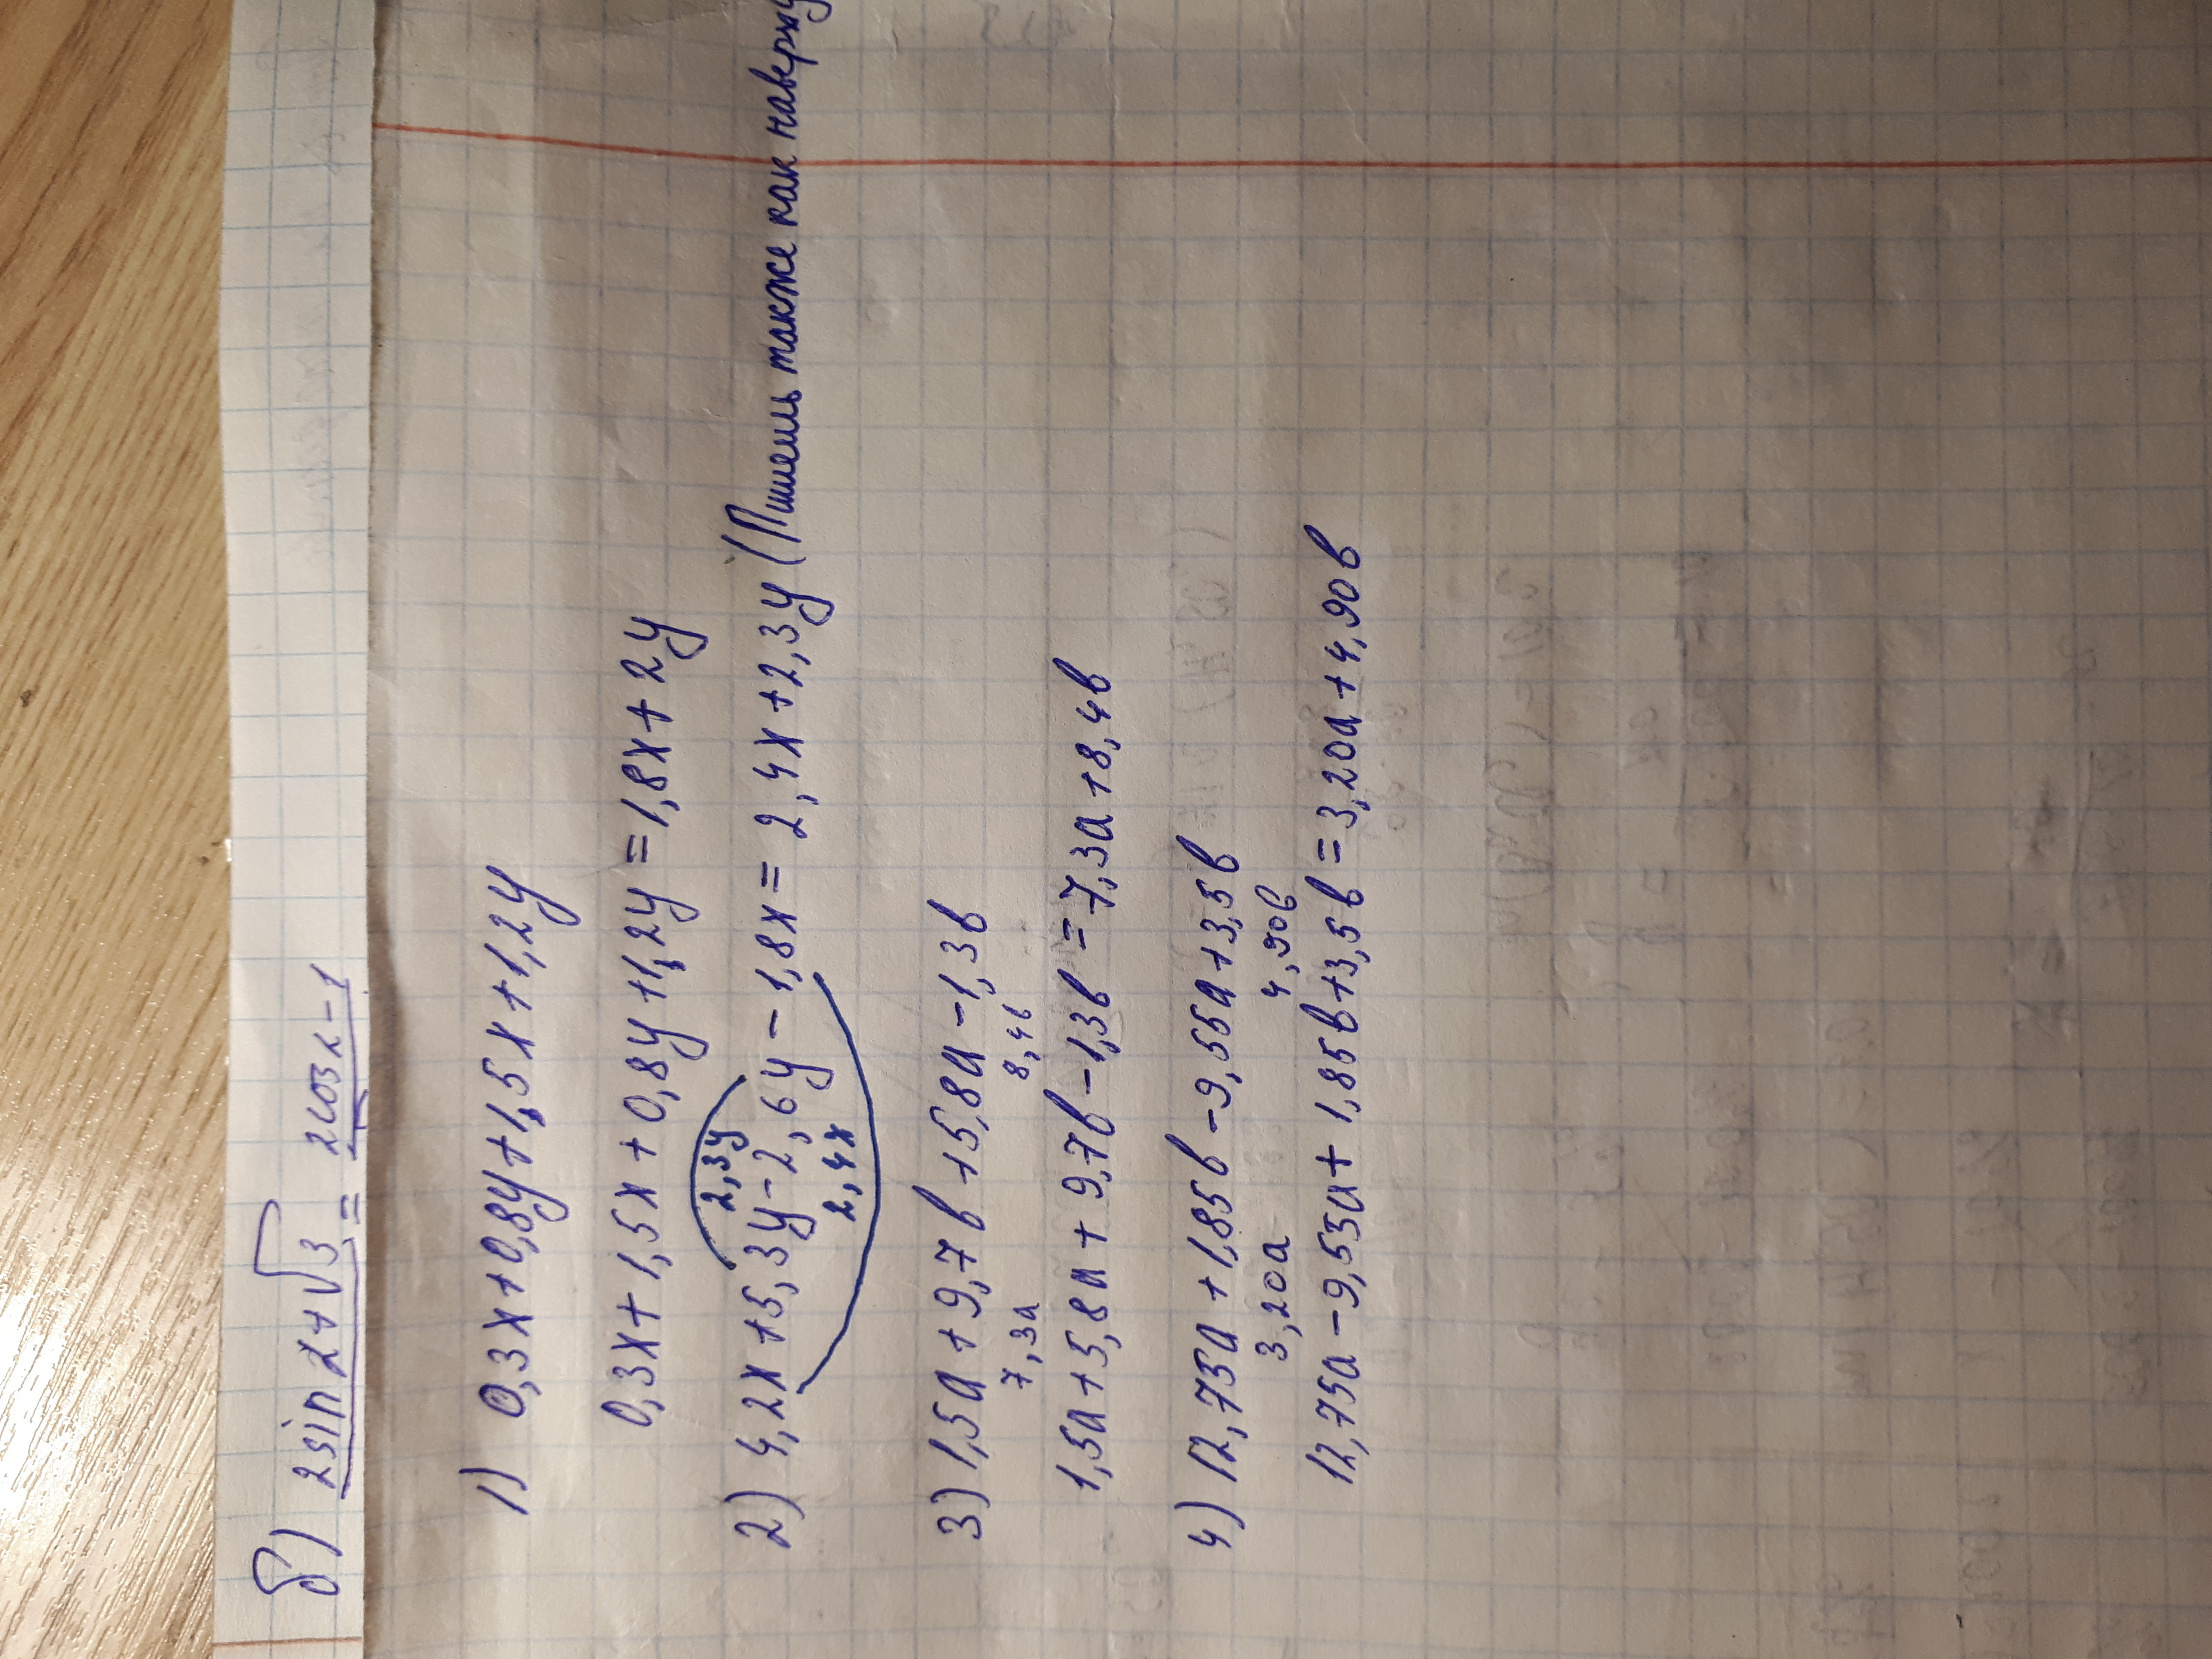 б) 2sin2+√3 = 2cos2-1
1) 0,3x+0,8y+1,5x+1,2y
0,3x+1,5x+0,8y+1,2y=1,8x+2y
2,3y
2) 4,2x+5,3y-2,6y-1,8x=2,4x+2,3y (Пишешь также как наверху
2,4x
3) 1,5a+9,7b+5,8a-1,3b
7,3a 8,4b
1,5a+5,8a+9,7b-1,3b=7,3a+8,4b
4) 12,75a+1,85b-9,55a+3,5b
3,20a 4,90b
12,75a-9,55a+1,85b+3,5b=3,20a+4,90b